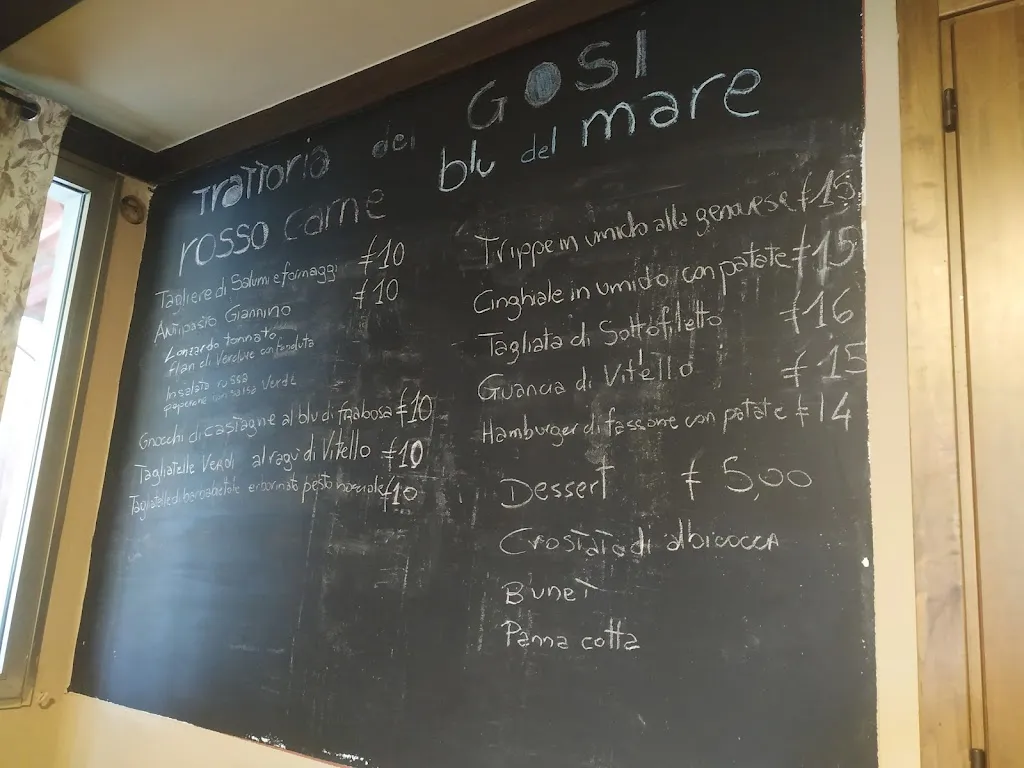 Trattoria dei GOSI
rosso carne
Tagliere di Salumi e formaggi €10
Antipasto Giannino €10
Lonzardo tonnato
Flan di Verdure con fonduta
Insalata russa
peperone con salsa verde
Gnocchi di castagne al blu di frabosa €10
Tagliatelle Verdi al ragù di Vitello €10
Tagliatelle di erborinato pesto €10
blu del mare
Trippe in umido alla genovese €15
Cinghiale in umido con patate €15
Tagliata di Sottofiletto €16
Guancia di Vitello €15
Hamburger di fassone con patate €14
Dessert € 5,00
Crostata di albicocca
Bunet
Panna cotta